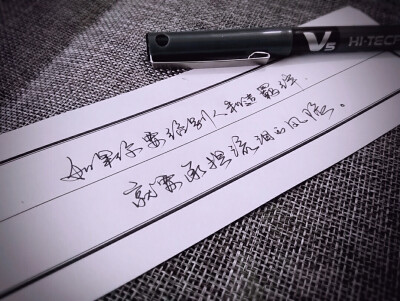 V5 HI-TECP
如果你要给别人制造羁绊
就要承担流泪的风险。